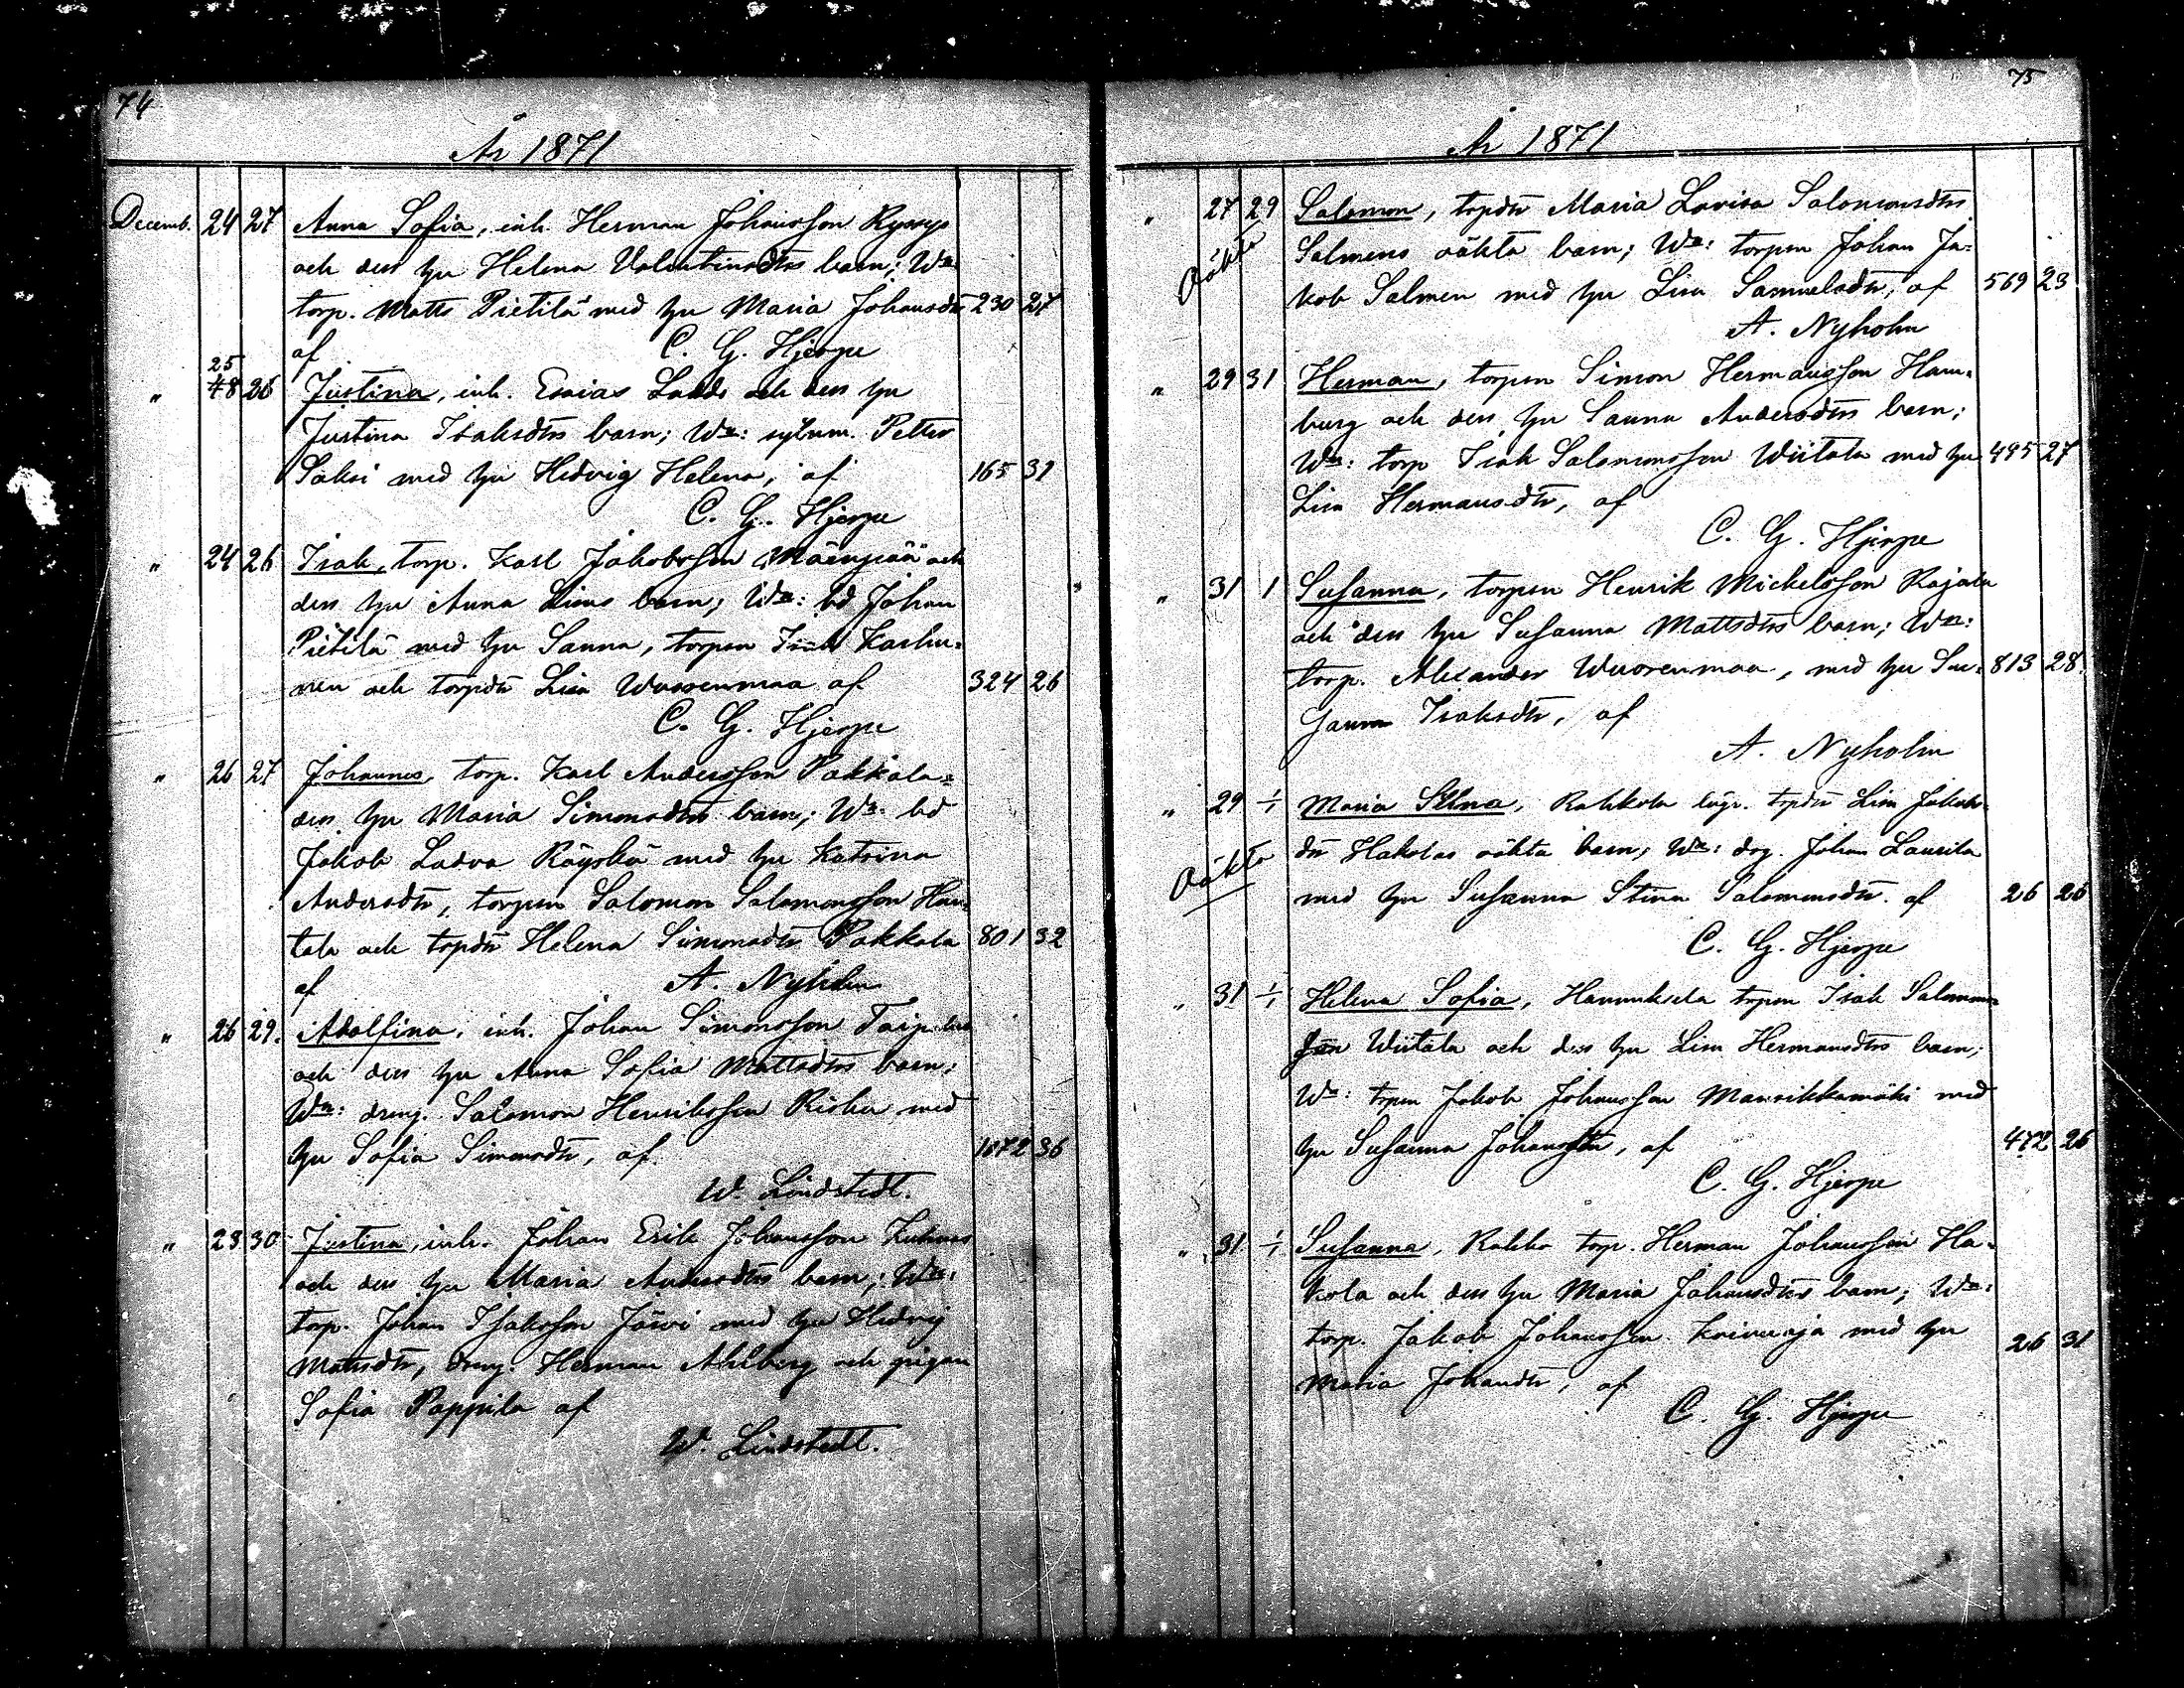 74
År 1871
Decemb. 24 27 Anna Sofia, inh. Herman Johansson Ryssys
och dess hu Helena Valentinsdtrs barn; Wn
torp. Matts Pietilä med hu Maria Johansdtr 230 27
af C. G. Hjerpe
25
" 48 26 Justina, inh. Esaias Ladds och dess hu
Justina Isaksdtrs barn; Wn: sytnm. Petter
Saksi med hu Hedvig Helena, af 165 31
C. G. Hjerpe
" 24 26 Isak, torp. Karl Jakobsson Mäenpää och
dess hu Anna Lisas barn; Wn: bd Johan
Pietilä med hu Sanna, torpson Isak Karhu-
nen och torpdtr Lisa Wuorenmaa af 324 26
C. G. Hjerpe
" 26 27 Johannes, torp. Karl Andersson Pakkala-
dess hu Maria Simonsdtrs barn; Wn: bd
Jakob Ladva Räyskä med hu Katrina
Andersdtr, torpson Salomon Salomonsson Han-
tala och torpdtr Helena Simonsdtr Pakkala 801 32
af A. Nyholm
" 26 29. Adolfina, inh. Johan Simonsson Taipalus
och dess hu Anna Sofia Mattsdtrs barn;
Wn: dreng. Salomon Henriksson Risku med
hu Sofia Simonsdtr, af 1072 36
W. Lindstedt.
" 28 30 Justina, inh. Johan Erik Johansson
och dess hu Maria Andersdtrs barn; Wn:
torp. Johan Isaksson Järvi med hu Hedvig
Mattsdtr, dreng. Herman Ahlberg och pigan
Sofia Pappila af
W. Lindstedt.
75
År 1871
" 27 29 Salomon, torpdtr Maria Lovisa Salomonsdtrs
Oäkta Salmens oäkta barn; Wn: torpson Johan Ja-
kob Salmen med hu Lisa Samuelsdtr, af 569 23
A. Nyholm
" 29 31 Herman, torpson Simon Hermansson Ham-
burg och dess hu Sanna Andersdtrs barn;
Wn: torp Isak Salomonsson Wiitala med hu 495 27
Lisa Hermansdtr, af
C. G. Hjerpe
" 31 1 Susanna, torpson Henrik Mickelsson Rajala
och dess hu Susanna Mattsdtrs barn; Wn:
torp. Alexander Wuorenmaa, med hu Su- 813 28
sanna Isaksdtr, af
A. Nyholm
" 29 1/1 Maria Stina, Rahkola torpdtr Lisa Jakobs-
Oäkta dtr Hakolas oäkta barn; Wn: drg. Johan Laurila
med hu Susanna Stina Salomonsdtr. af 26 26
C. G. Hjerpe
" 31 1/1 Helena Sofia, Hannuksela torpson Isak Salomons-
son Wiitala och dess hu Lisa Hermansdtrs barn;
Wn: torpson Jakob Johansson Mansikkamäki med
hu Susanna Johansdtr, af 472 26
C. G. Hjerpe
" 31 1/1 Susanna, Rahko torp. Herman Johansson Ha-
kola och dess hu Maria Johansdtrs barn; Wn:
torp. Jakob Johansson Koivuoja med hu 26 31
Maria Johansdtr, af
C. G. Hjerpe